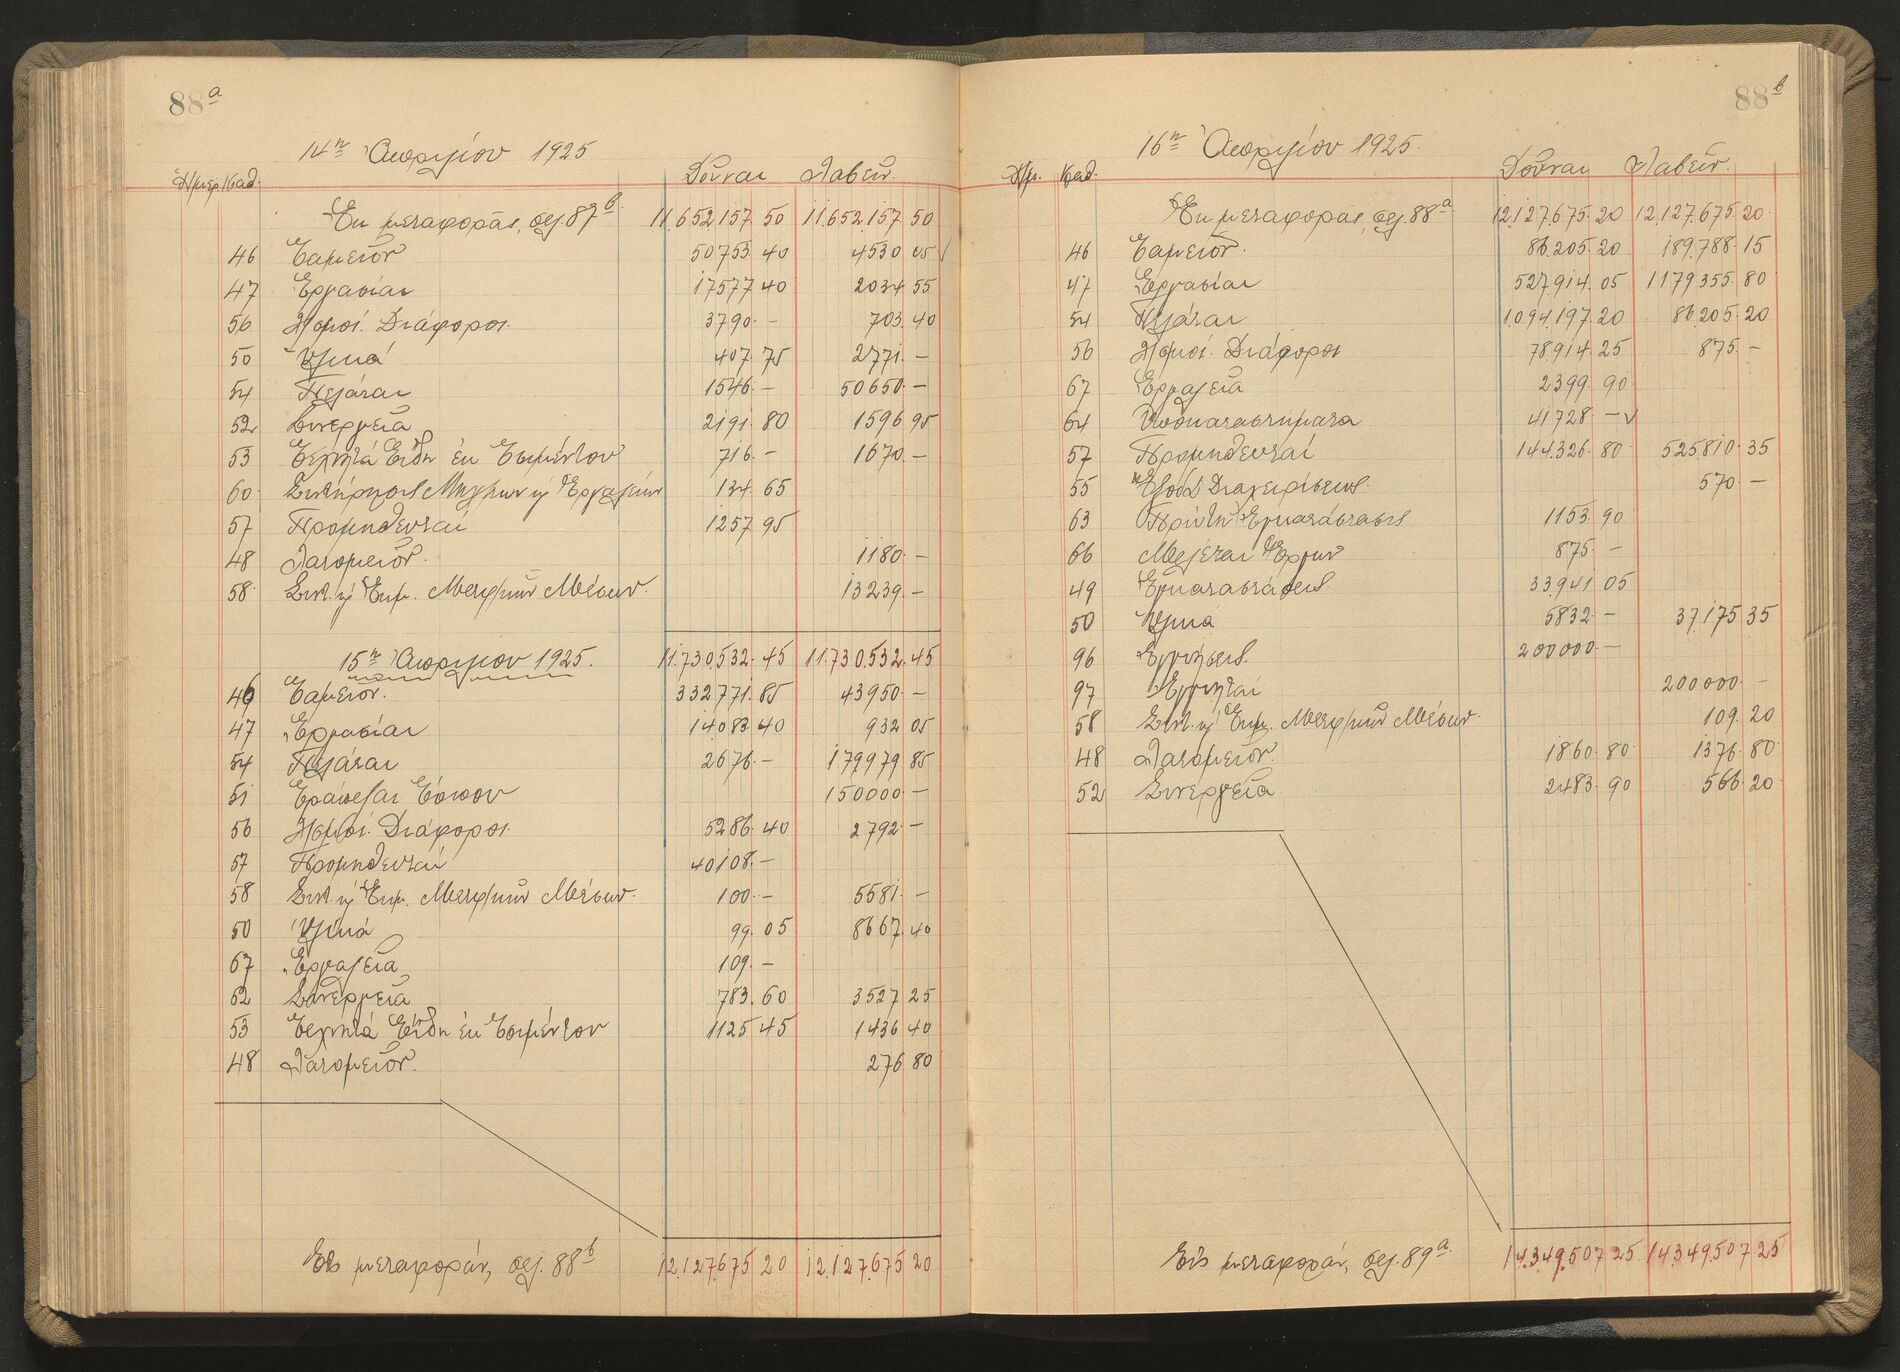 88ª
14η Ἀπριλίου 1925
Ημερ. Καθ. Δοῦναι Λαβεῖν.
Ἐκ μεταφορᾶς, σελ. 87β 11.652.157 50 11.652.157 50
46 Ταμεῖον 50753 40 4530 05
47 Ἐργασίαι 17577 40 2034 55
56 Λ/σμοί. Διάφοροι. 3790 – 703 40
50 Ὑλικά 407 75 2771 –
54 Πελάται 1546 – 50650 –
52 Συνεργεῖα 2191 80 1596 95
53 Τεχνητά Εἴδη ἐκ Τσιμέντου 716 – 1670 –
60 Συντήρησις Μηχ/των κ Ἐργαλείων 134 65
57 Προμηθευταί 1257 95
48 Λατομεῖον. 1180 –
58 Συντ. κ Ἐκμ. Μεταφ/κῶν Μέσων. 13239 –
11.730.532. 45 11.730.532. 45
15η Ἀπριλίου 1925.
46 Ταμεῖον. 332771. 85 43950 –
47 Ἐργασίαι 14083 40 932 05
54 Πελάται 2676 – 179979 85
51 Τράπεζαι Τόπου 150000 –
56 Λ/σμοί. Διάφοροι. 5286. 40 2792 –
57 Προμηθευταί 40108 –
58 Συντ. κ Ἐκμ. Μεταφ/κῶν Μέσων. 100 – 5581 –
50 Ὑλικά 99. 05 8667 40
67 Ἐργαλεῖα 109 –
52 Συνεργεῖα 783. 60 3527 25
53 Τεχνητά Εἴδη ἐκ Τσιμέντου 1125 45 1436 40
48 Λατομεῖον. 276 80
Εἰς μεταφοράν, σελ. 88β 12.127.675 20 12.127.675 20
88β
16η Ἀπριλίου 1925.
Ημ. Καθ. Δοῦναι Λαβεῖν.
Ἐκ μεταφορᾶς, σελ. 88ª 12.127.675. 20 12.127.675. 20
46 Ταμεῖον. 86.205. 20 189.788. 15
47 Ἐργασίαι 527.914. 05 1179355. 80
54 Πελάται 1.094.197. 20 86.205. 20
56 Λ/σμοί. Διάφοροι 78.914. 25 875 –
67 Ἐργαλεῖα 2399 90
64 Υποκαταστήματα 41728 –
57 Προμηθευταί 144.326. 80 525.810. 35
55 Ἔξοδα Διαχειρίσεως. 570 –
63 Πρώτη Ἐγκατάστασις 1153. 90
66 Μελέται Ἔργων 875 –
49 Ἐγκαταστάσεις. 33.941 05
50 Ὑλικά 5832 – 37.175 35
96 Ἐγγυήσεις. 200000 –
97 Ἐγγυηταί 200000 –
58 Συντ. κ Ἐκμ. Μεταφ/κῶν Μέσων. 109. 20
48 Λατομεῖον. 1860. 80 1376. 80
52 Συνεργεῖα 2483. 90 566. 20
Εἰς μεταφοράν, σελ. 89ª. 14.349.507 25 14.349.507 25